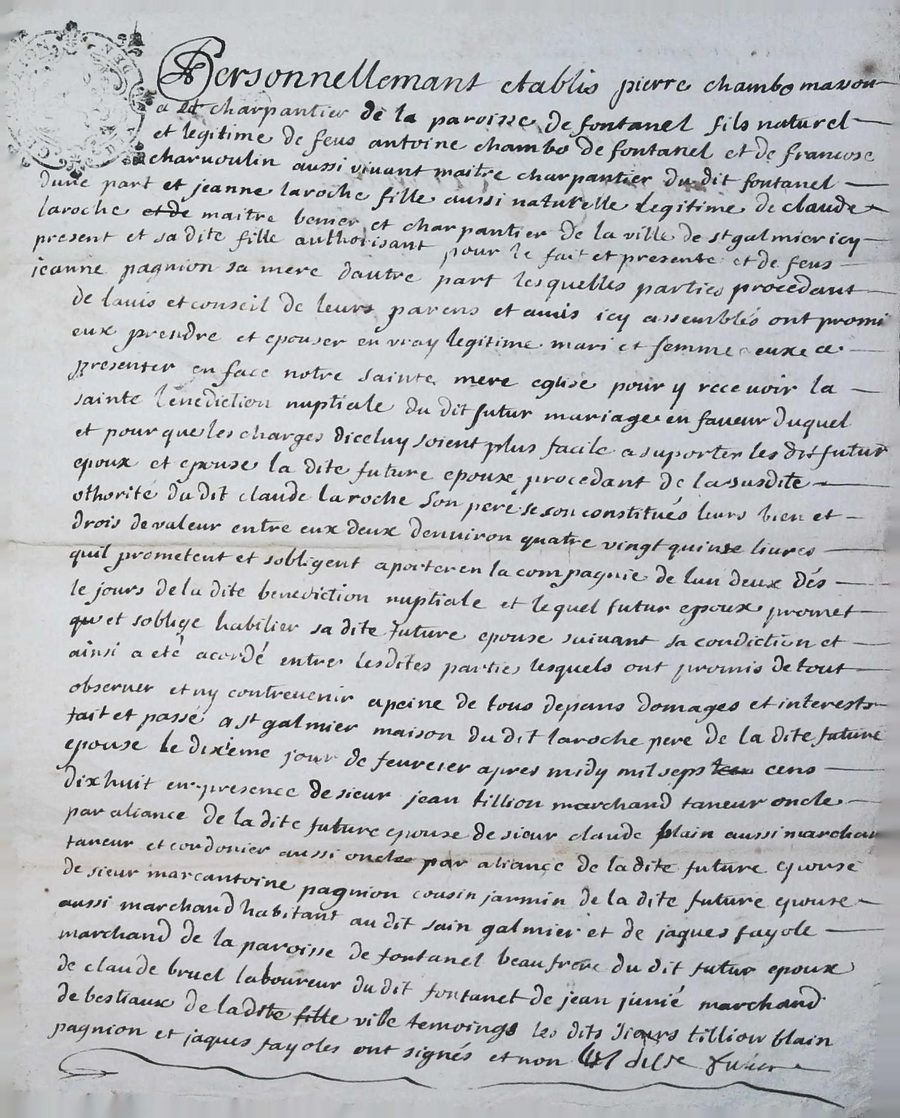 Personnellemant etablis pierre chambo masson
a et charpantier de la paroisse de fontanel fils naturel
et legitime de feus antoine chambo de fontanel et de francose
charuoulin aussi viuant maitre charpantier du dit fontanel
dune part et jeanne laroche fille aussi naturelle legitime de claude
laroche et de maitre benier et charpantier de la ville de st galmier icy
present et sa dite fille authorisant pour le fait et presente et de feus
jeanne pagnion sa mere dautre part lesquelles parties procedant
de lauis et conseil de leurs parens et amis icy assemblés ont promi
eux prendre et epouser en vray legitime mari et femme euxe ce
presenter en face notre sainte mere eglise pour y receuoir la
sainte benediction nuptiale du dit futur mariage en faveur duquel
et pour que les charges diceluy soient plus facile a suporter les dit futur
epoux et epouse la dite future epouse procedant de la susdite
othorité du dit claude laroche son pere se son constitués leurs bien et
drois de valeur entre eux deux denuiron quatre vingt quinse liures
quil prometent et sobligent aporter en la compagnie de lun deux dés
le jours de la dite benediction nuptiale et lequel futur epoux promet
qu et soblige habilier sa dite future epouse suiuant sa condiction et
ainsi a eté acordé entre lesdites parties lesquels ont promis de tout
obseruer et ny contreuenir a peine de tous depans domages et interests
fait et passé a st galmier maison du dit laroche pere de la dite future
epouse le dixieme jour de feureier apres midy mil sept cens
dixhuit en presence de sieur jean tillion marchand taneur oncle
par aliance de la dite future epouse de sieur claude blain aussi marchan
taneur et cordonier aussi oncle par aliance de la dite future epouse
de sieur marcantoine pagnion cousin jarmin de la dite future epouse
aussi marchand habitant au dit sain galmier et de jaques fayole
marchand de la paroisse de fontanel beaufrere du dit futur epoux
de claude bruel laboureur du dit fontanet de jean junié marchand
de bestiaux de la dite fille ville temoings les dits sieurs tilliou blain
pagnion et jaques fayoles ont signés et non